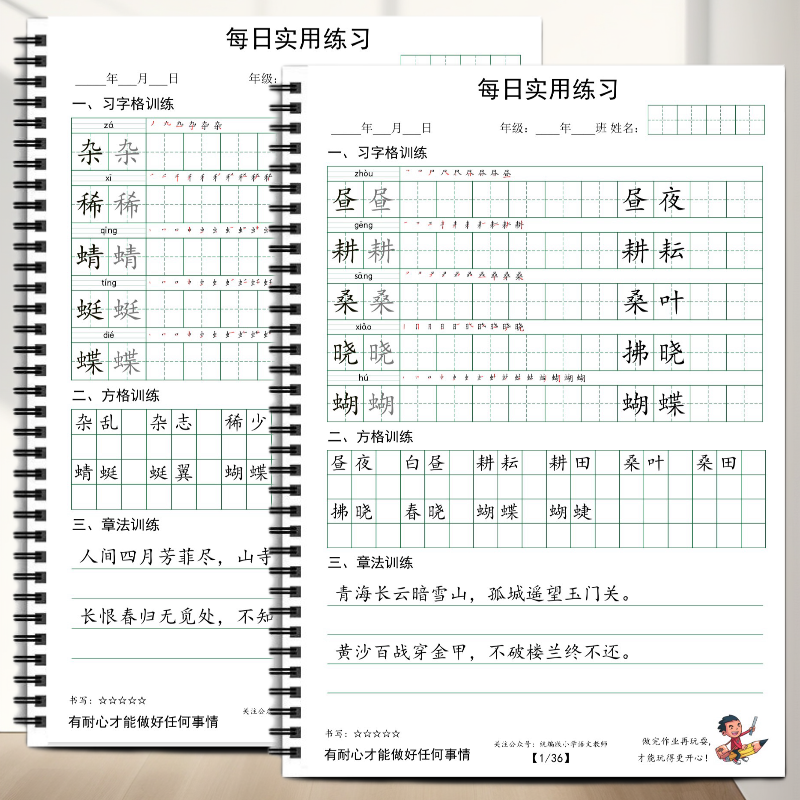 每日实用练习
_____年___月___日 年级:
一、习字格训练
zá
杂 杂
xī
稀 稀
qīng
蜻 蜻
tíng
蜓 蜓
dié
蝶 蝶
二、方格训练
杂乱 杂志 稀少
蜻蜓 蜓翼 蝴蝶
三、章法训练
人间四月芳菲尽，山寺
长恨春归无觅处，不知
书写：☆☆☆☆☆
关注公众
有耐心才能做好任何事情
每日实用练习
_____年___月___日 年级：____年____班 姓名：
一、习字格训练
zhòu
昼 昼 昼夜
gēng
耕 耕 耕耘
sāng
桑 桑 桑叶
xiǎo
晓 晓 拂晓
hú
蝴 蝴 蝴蝶
二、方格训练
昼夜 白昼 耕耘 耕田 桑叶 桑田
拂晓 春晓 蝴蝶 蝴蜨
三、章法训练
青海长云暗雪山，孤城遥望玉门关。
黄沙百战穿金甲，不破楼兰终不还。
书写：☆☆☆☆☆
有耐心才能做好任何事情
关注公众号：统编版小学语文教师
【1/36】
做完作业再玩耍，
才能玩得更开心！